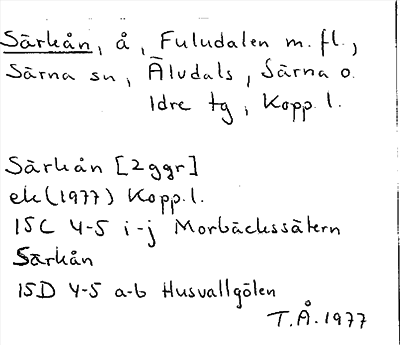 Särkån, å, Fuludalen m. fl.,
Särna sn, Älvdals, Särna o.
Idre tg, Kopp. l.
Särkån [2ggr]
ek (1977) Kopp. l.
15C 4-5 i-j Morbäckssätern
Särkån
15D 4-5 a-b Husvallgölen
T.Å. 1977